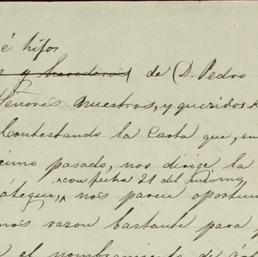 é hijos
y herederos, de D. Pedro
Señores nuestros, y queridos
Contestando la carta que, en
cimo pasado, nos dirige la
con fecha 21 del mismo
nos parece oportun
más razon bastante para
el nombramiento de